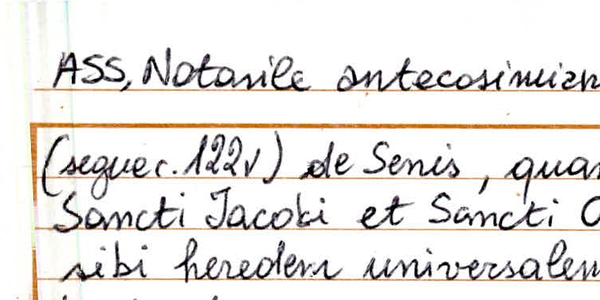 ASS, Notarile antecosimian
(segue c. 122v) de Senis, qua
Sancti Jacobi et Sancti
sibi heredem universalem